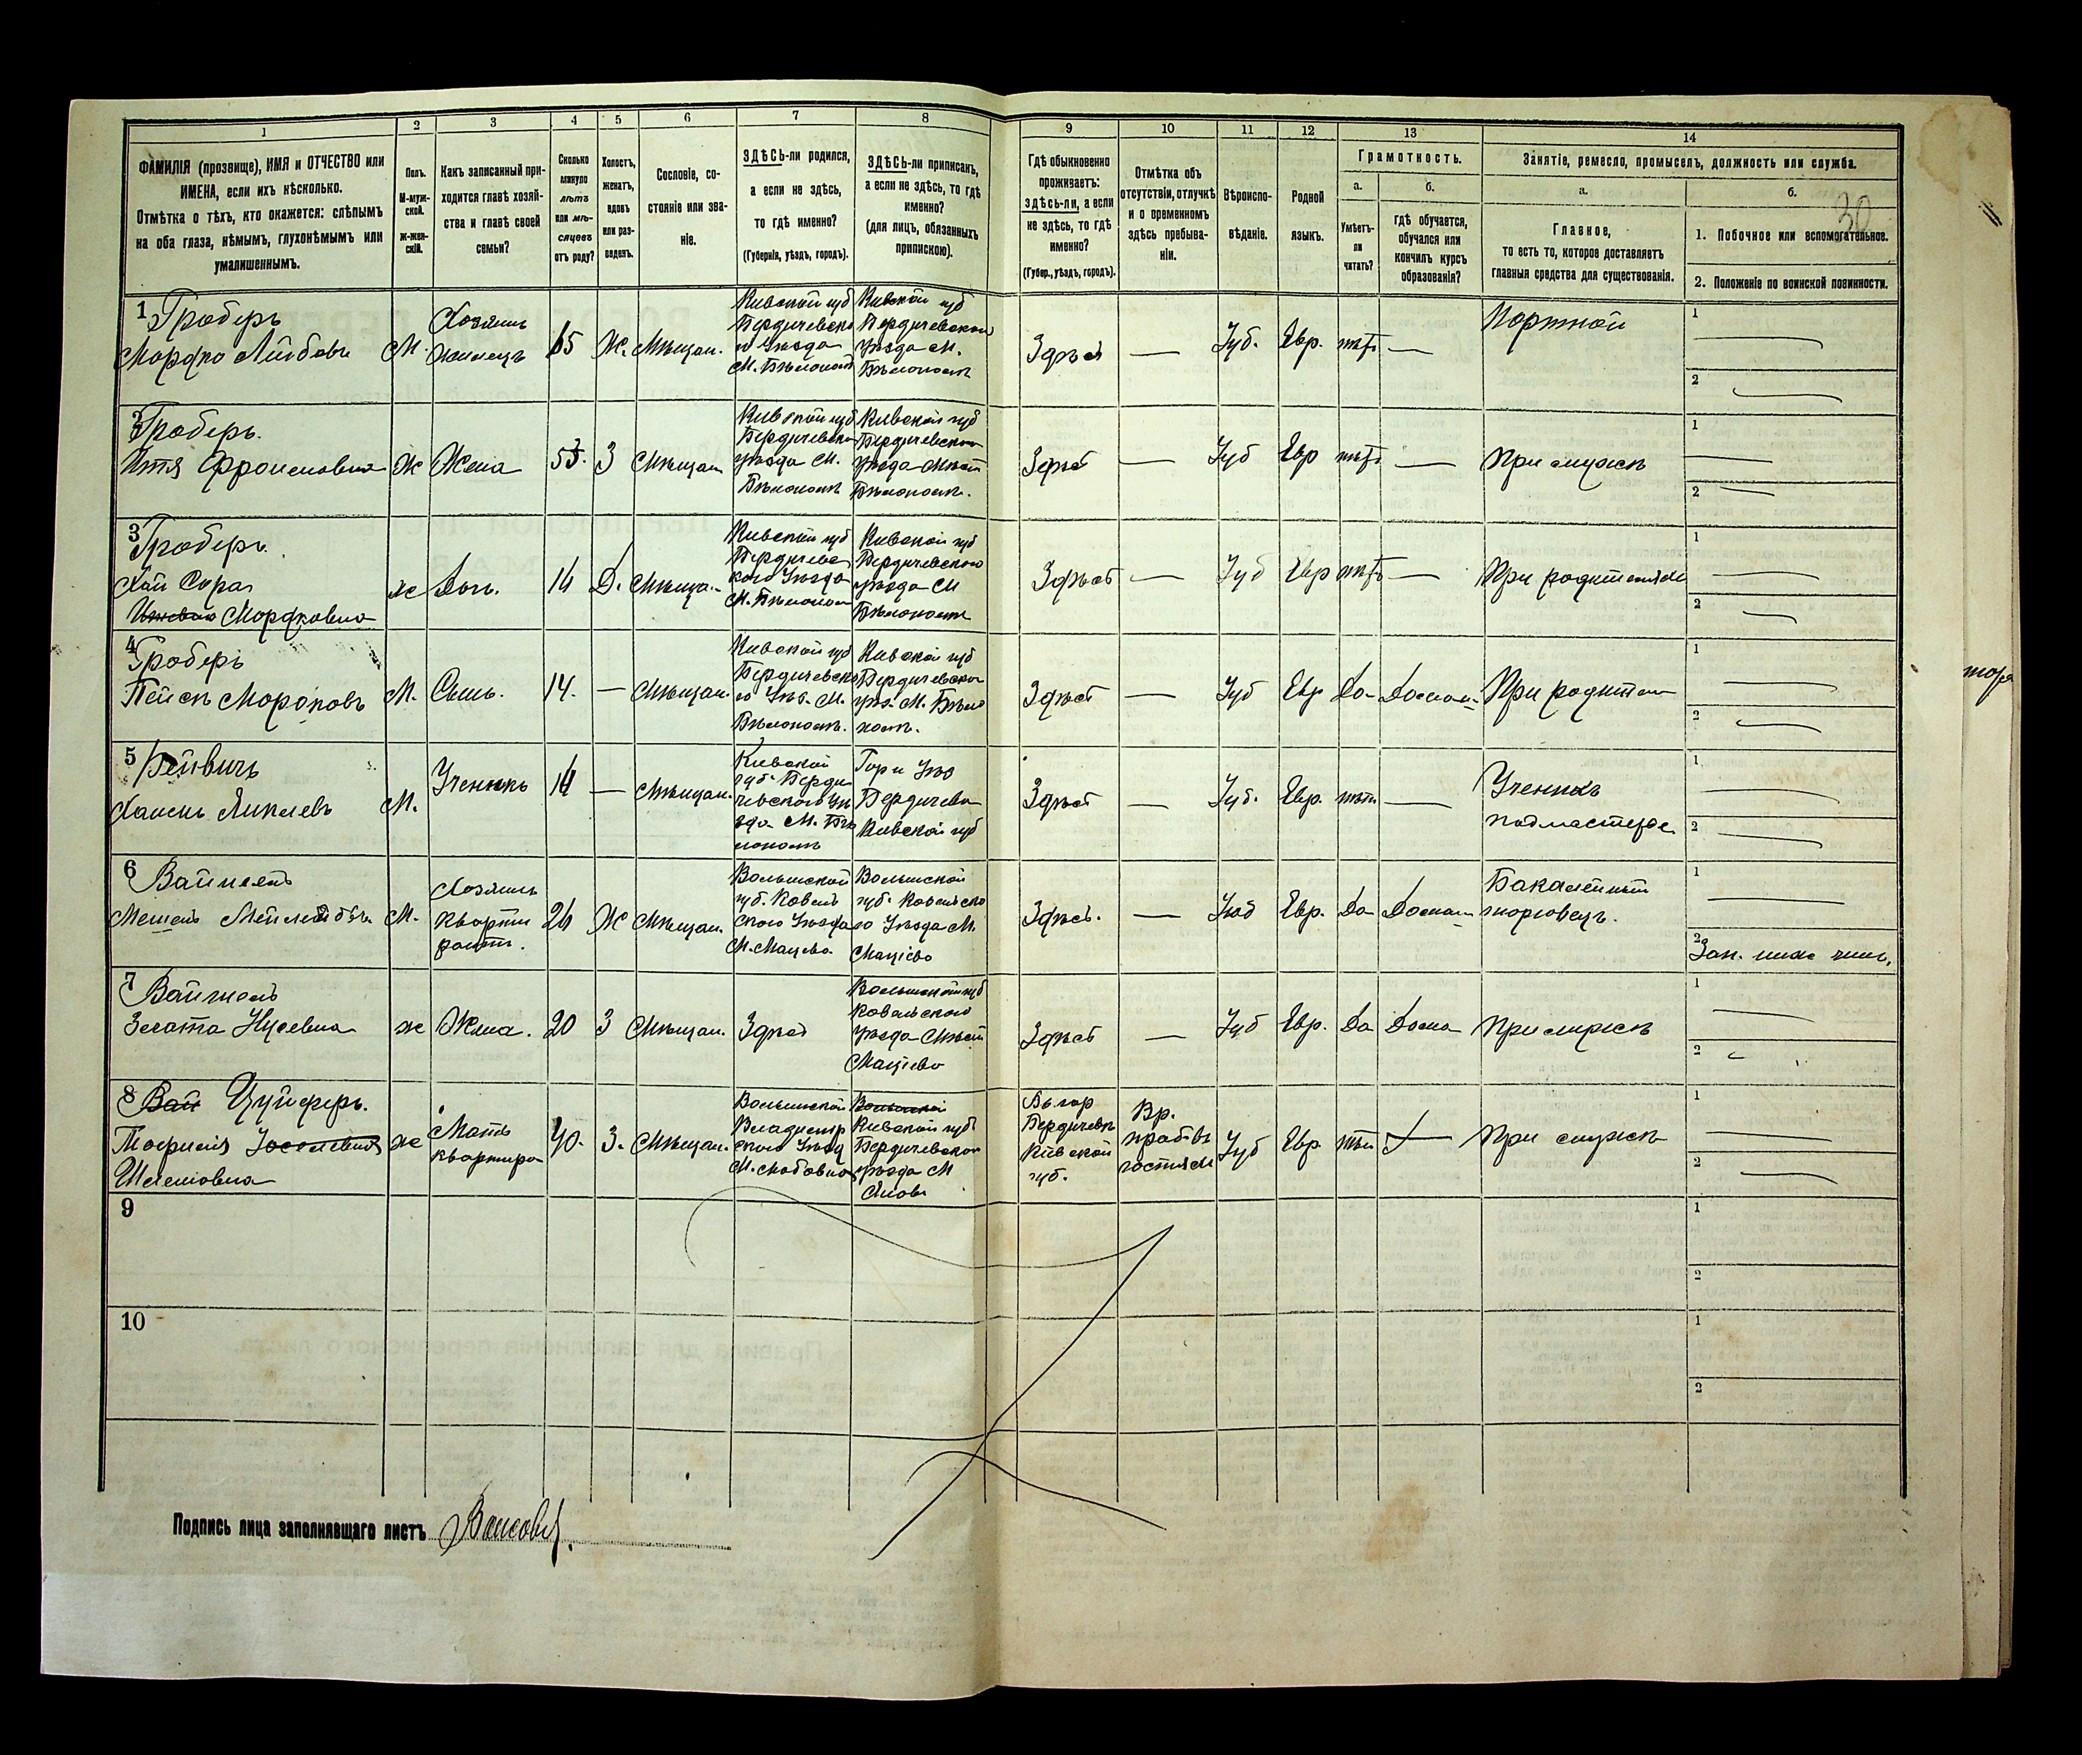 1 2 3 4 5 6 7 8 9 10 11 12 13 14
ФАМИЛІЯ (прозвище), ИМЯ и ОТЧЕСТВО или
ИМЕНА, если ихъ нѣсколько.
Отмѣтка о тѣхъ, кто окажется: слѣпымъ
на оба глаза, нѣмымъ, глухонѣмымъ или
умалишеннымъ.
Полъ.
М-муж-
ской.
ж-жен-
скій.
Какъ записанный при-
ходится главѣ хозяй-
ства и главѣ своей
семьи?
Сколько
минуло
лѣтъ
или мѣ-
сяцевъ
отъ роду?
Холостъ,
женатъ,
вдовъ
или раз-
веденъ.
Сословіе, со-
стояніе или зва-
ніе.
ЗДѢСЬ-ли родился,
а если не здѣсь,
то гдѣ именно?
(Губернія, уѣздъ, городъ).
ЗДѢСЬ-ли приписанъ,
а если не здѣсь, то гдѣ
именно?
(для лицъ, обязанныхъ
припискою).
Гдѣ обыкновенно
проживаетъ:
здѣсь-ли, а если
не здѣсь, то гдѣ
именно?
(Губер., уѣздъ, городъ).
Отмѣтка объ
отсутствіи, отлучкѣ
и о временномъ
здѣсь пребыва-
ніи.
Вѣроиспо-
вѣданіе.
Родной
языкъ.
Грамотность.
а.
Умѣетъ-
ли
читать?
б.
гдѣ обучается,
обучался или
кончилъ курсъ
образованія?
Занятіе, ремесло, промыселъ, должность или служба.
а.
Главное,
то есть то, которое доставляетъ
главныя средства для существованія.
б.
30
1. Побочное или вспомогательное.
2. Положеніе по воинской повинности.
1
Граберъ
Мордко Лейбовъ
М.
Хозяинъ
65
Ж.
Мѣщан.
Кивской губ
Бердичевско
го Уѣзда
М. Бѣлополь
Кивской губ
Бердичевского
уѣзда М.
Бѣлополь
Здѣсь
—
Іуд.
Евр.
нѣтъ
—
Портной
1
2
2
Граберъ.
Ж
Жена
55.
З
Мѣщан
Кивской губ
Бердичевско
уѣзда М.
Бѣлополь
Кивской губ
Бердичевского
уѣзда
Бѣлополь.
Здѣсь
—
Іуд
Евр
нѣтъ
—
При мужѣ
1
2
3
Граберъ.
Хая Сура
Мордковна
ж
Дочь.
16
Д.
Мѣща.
Кивской губ
Бердичевс
кого Уѣзда
М. Бѣлопол
Кивской губ
Бердичевского
уѣзда М
Бѣлополь
Здѣсь
—
Іуд
Евр
нѣтъ
—
При родителям
1
2
4
Граберъ
Пейсъ Мордковъ
М.
Сынъ.
14.
—
Мѣщан.
Кивской губ
Бердичевско
го Уѣз. М.
Бѣлополь.
Кивской губ
Бердичевского
уѣз. М. Бѣло
поль.
Здѣсь
—
Іуд
Евр
Да
Домаш.
При родител
1
2
5
Хаимъ Янкелевъ
М.
Ученикъ
14
—
Мѣщан.
Кивской
губ. Берди
чевского Уѣ
зда М. Бѣ
лополь
Бердичева
Кивской губ
Здѣсь
—
Іуд.
Евр.
нѣтъ
—
Ученикъ
подмастерье
1
2
6
М.
Хозяинъ
кварти
рантъ.
26
Ж
Мѣщан.
Волынской
губ. Ковель
ского Уѣзда
М. Мацево
Волынской
губ. Ковельско
го Уѣзда М.
Маціево
Здѣсь.
—
Іюд
Евр.
Да
Домаш
Бакалейный
торговецъ.
1
2
Зап. ниж. чинъ.
7
Злата Нусевна
ж
Жена.
20
З
Мѣщан.
Здѣсь
Волынской губ
Ковельского
уѣзда Мѣст
Маціево
Здѣсь
—
Іуд
Евр.
Да
Дома
При мужѣ
1
2
8
Вай Цуйферъ.
Шлемовна
ж
Мать
квартира
40.
З.
Мѣщан.
Волынской
Владимір
ского Уѣзд
Волынской
Кивской губ
Бердичевского
уѣзда М
Янов
Въ гор
Бердичевъ
Кивской
губ.
Вр.
преб. въ
гостяхъ
Іуд
Евр
нѣтъ
—
При мужѣ
1
2
9
1
2
10
1
2
Подпись лица заполнявшаго листъ